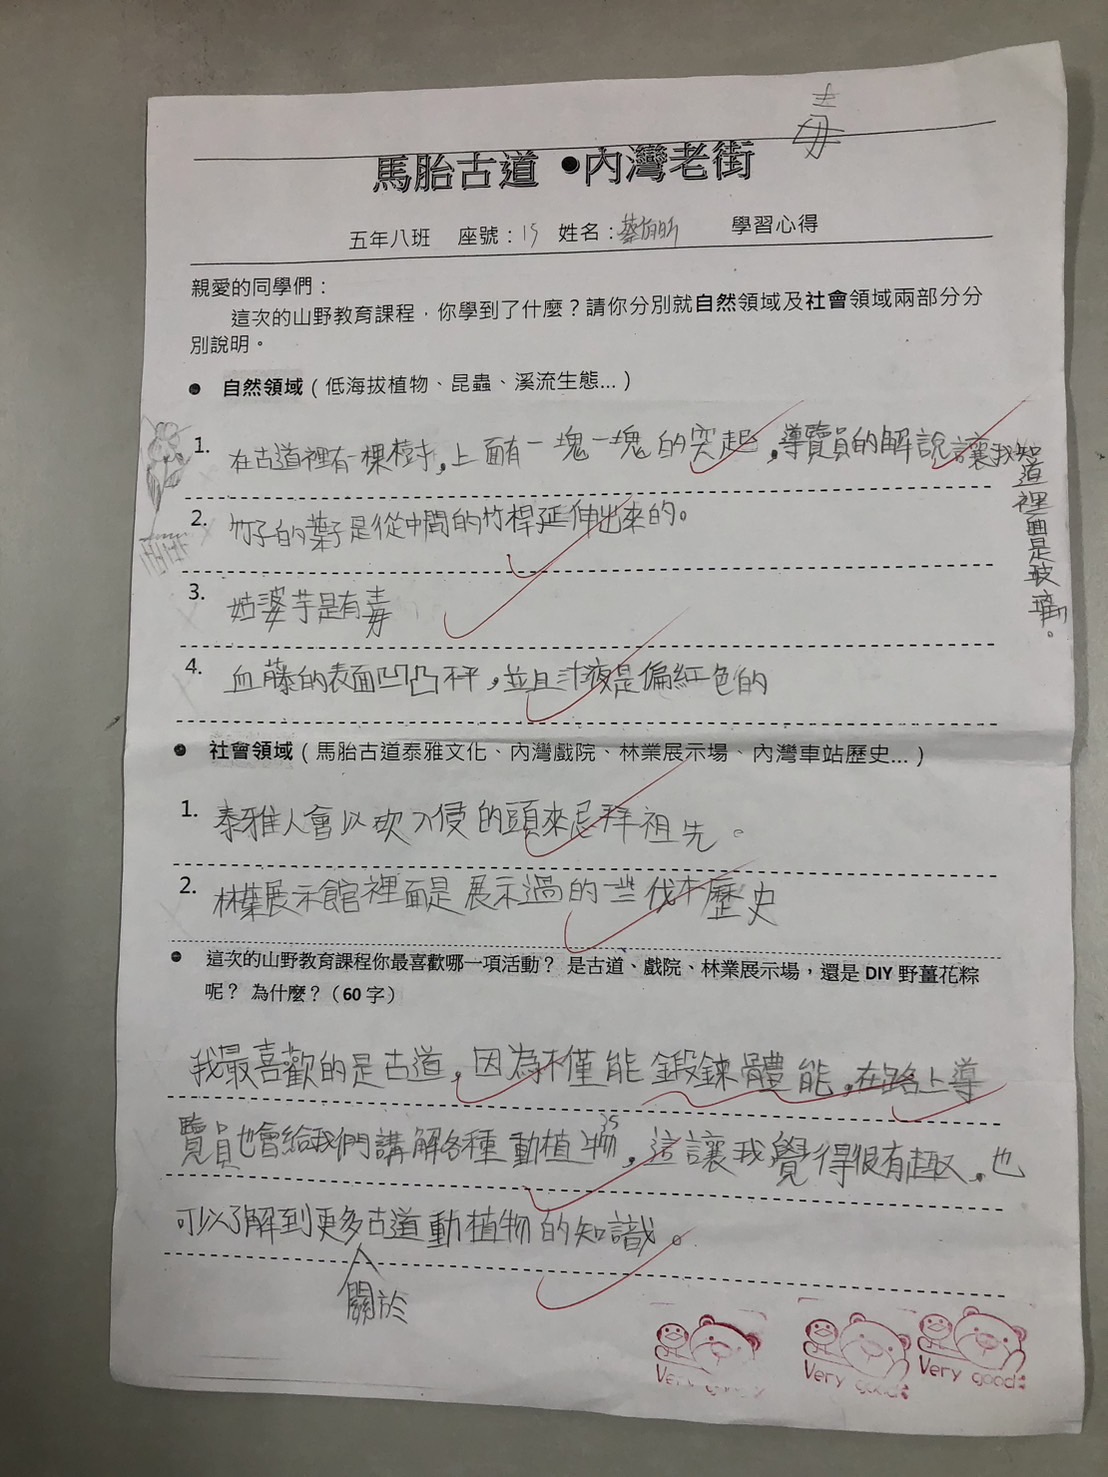 毒
馬胎古道 •內灣老街
五年八班 座號：15 姓名：蔡伯昕 學習心得
親愛的同學們：
這次的山野教育課程，你學到了什麼？請你分別就自然領域及社會領域兩部分分
別說明。
● 自然領域（低海拔植物、昆蟲、溪流生態…）
1. 在古道裡有一棵樹，上面有一塊一塊的突起，導覽員的解說讓我知道裡面是玻璃。
2. 竹子的葉子是從中間的竹桿延伸出來的。
3. 姑婆芋是有毒
4. 血藤的表面凹凸秤，並且汁液是偏紅色的
● 社會領域（馬胎古道泰雅文化、內灣戲院、林業展示場、內灣車站歷史…）
1. 泰雅人會以砍入侵的頭來忌拜祖先。
2. 林業展示館裡面是展示過的一些伐木歷史
● 這次的山野教育課程你最喜歡哪一項活動？ 是古道、戲院、林業展示場，還是 DIY 野薑花粽
呢？ 為什麼？（60 字）
我最喜歡的是古道，因為不僅能鍛鍊體能，在路上導
覽員也會給我們講解各種動植物，這讓我覺得很有趣，也
可以了解到更多古道動植物的知識。
關於
Very good
Very good
Very good